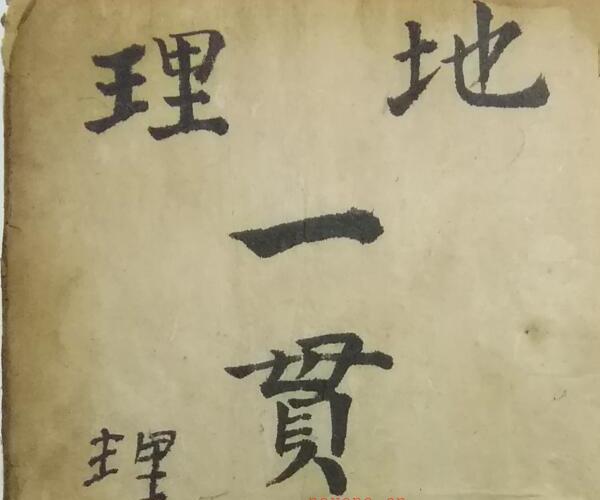 地理
一
貫
理